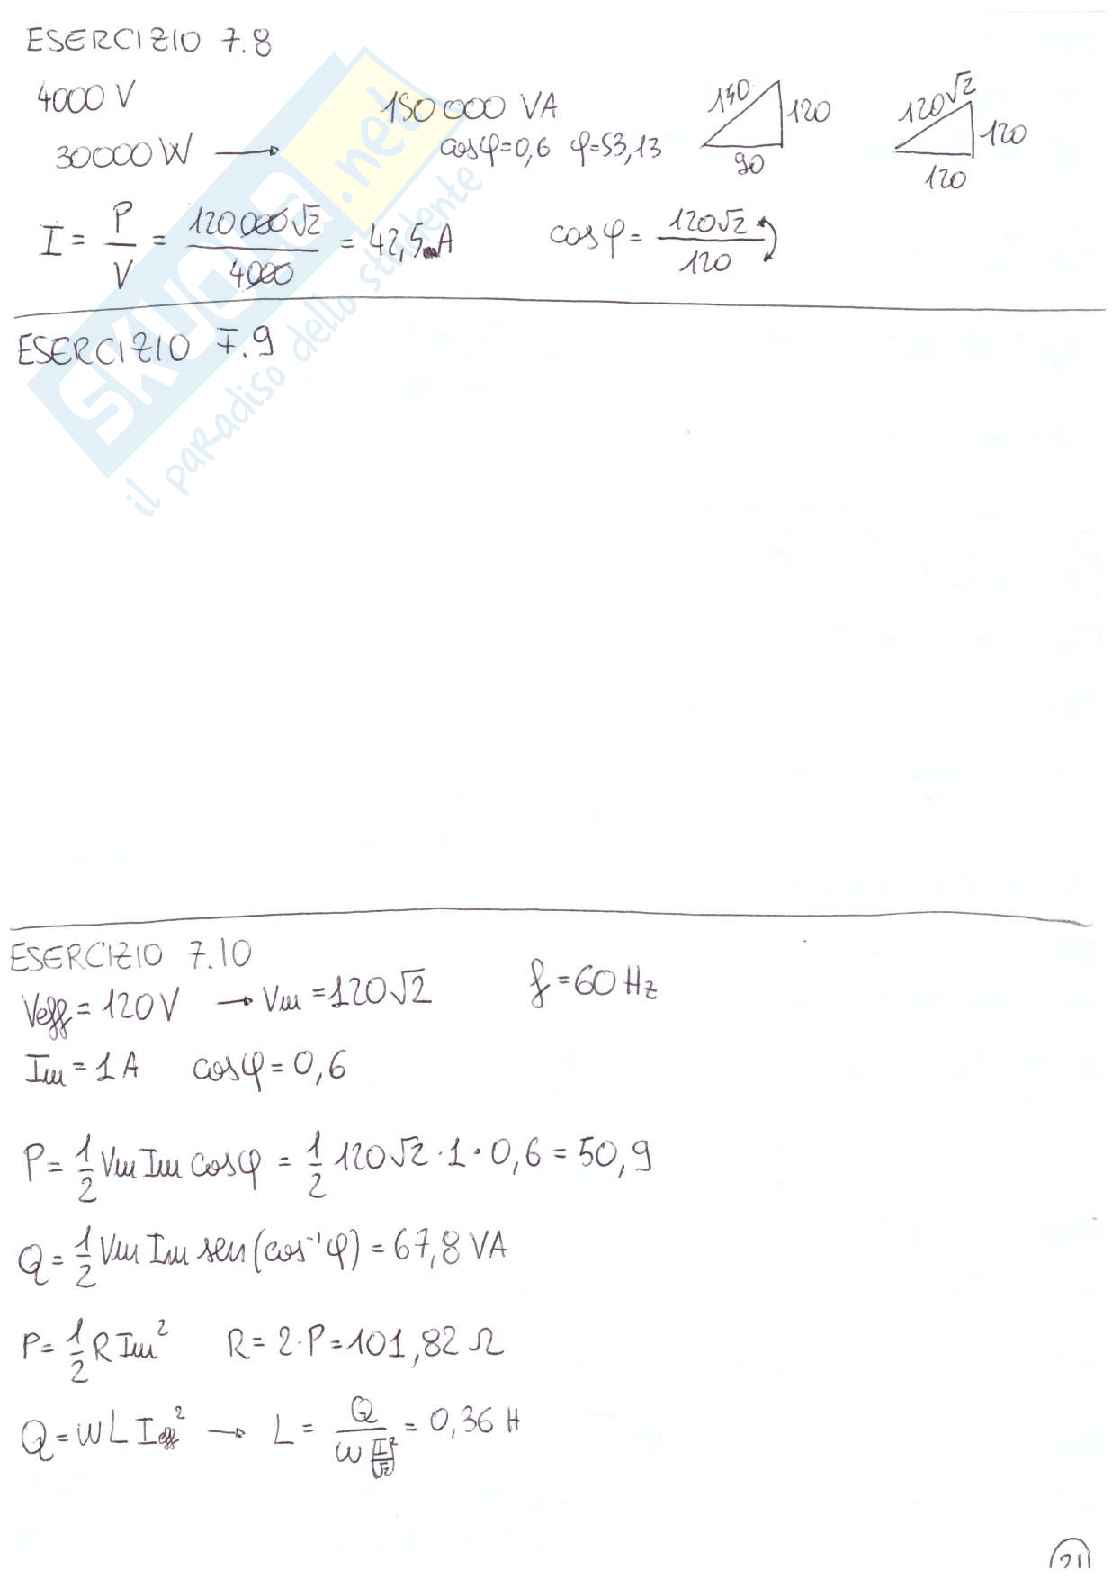 ESERCIZIO 7.8
4000 V
150000 VA
30000 W →
cosφ=0,6 φ=53,13
120
90
120√2
120
120
I = P/V = 120000√2/4000 = 42,5 A
cosφ = 120√2/120
ESERCIZIO 7.9
SKUOLA.net
il paradiso dello studente
ESERCIZIO 7.10
Veff = 120V → Vm = 120√2 f = 60 Hz
Im = 1 A cosφ = 0,6
P = 1/2 Vm Im cosφ = 1/2 120√2 · 1 · 0,6 = 50,9
Q = 1/2 Vm Im sen(cos⁻¹φ) = 67,8 VA
P = 1/2 R Im² R = 2·P = 101,82 Ω
Q = ωL Ieff² → L = Q/ω(I/√2)² = 0,36 H
21